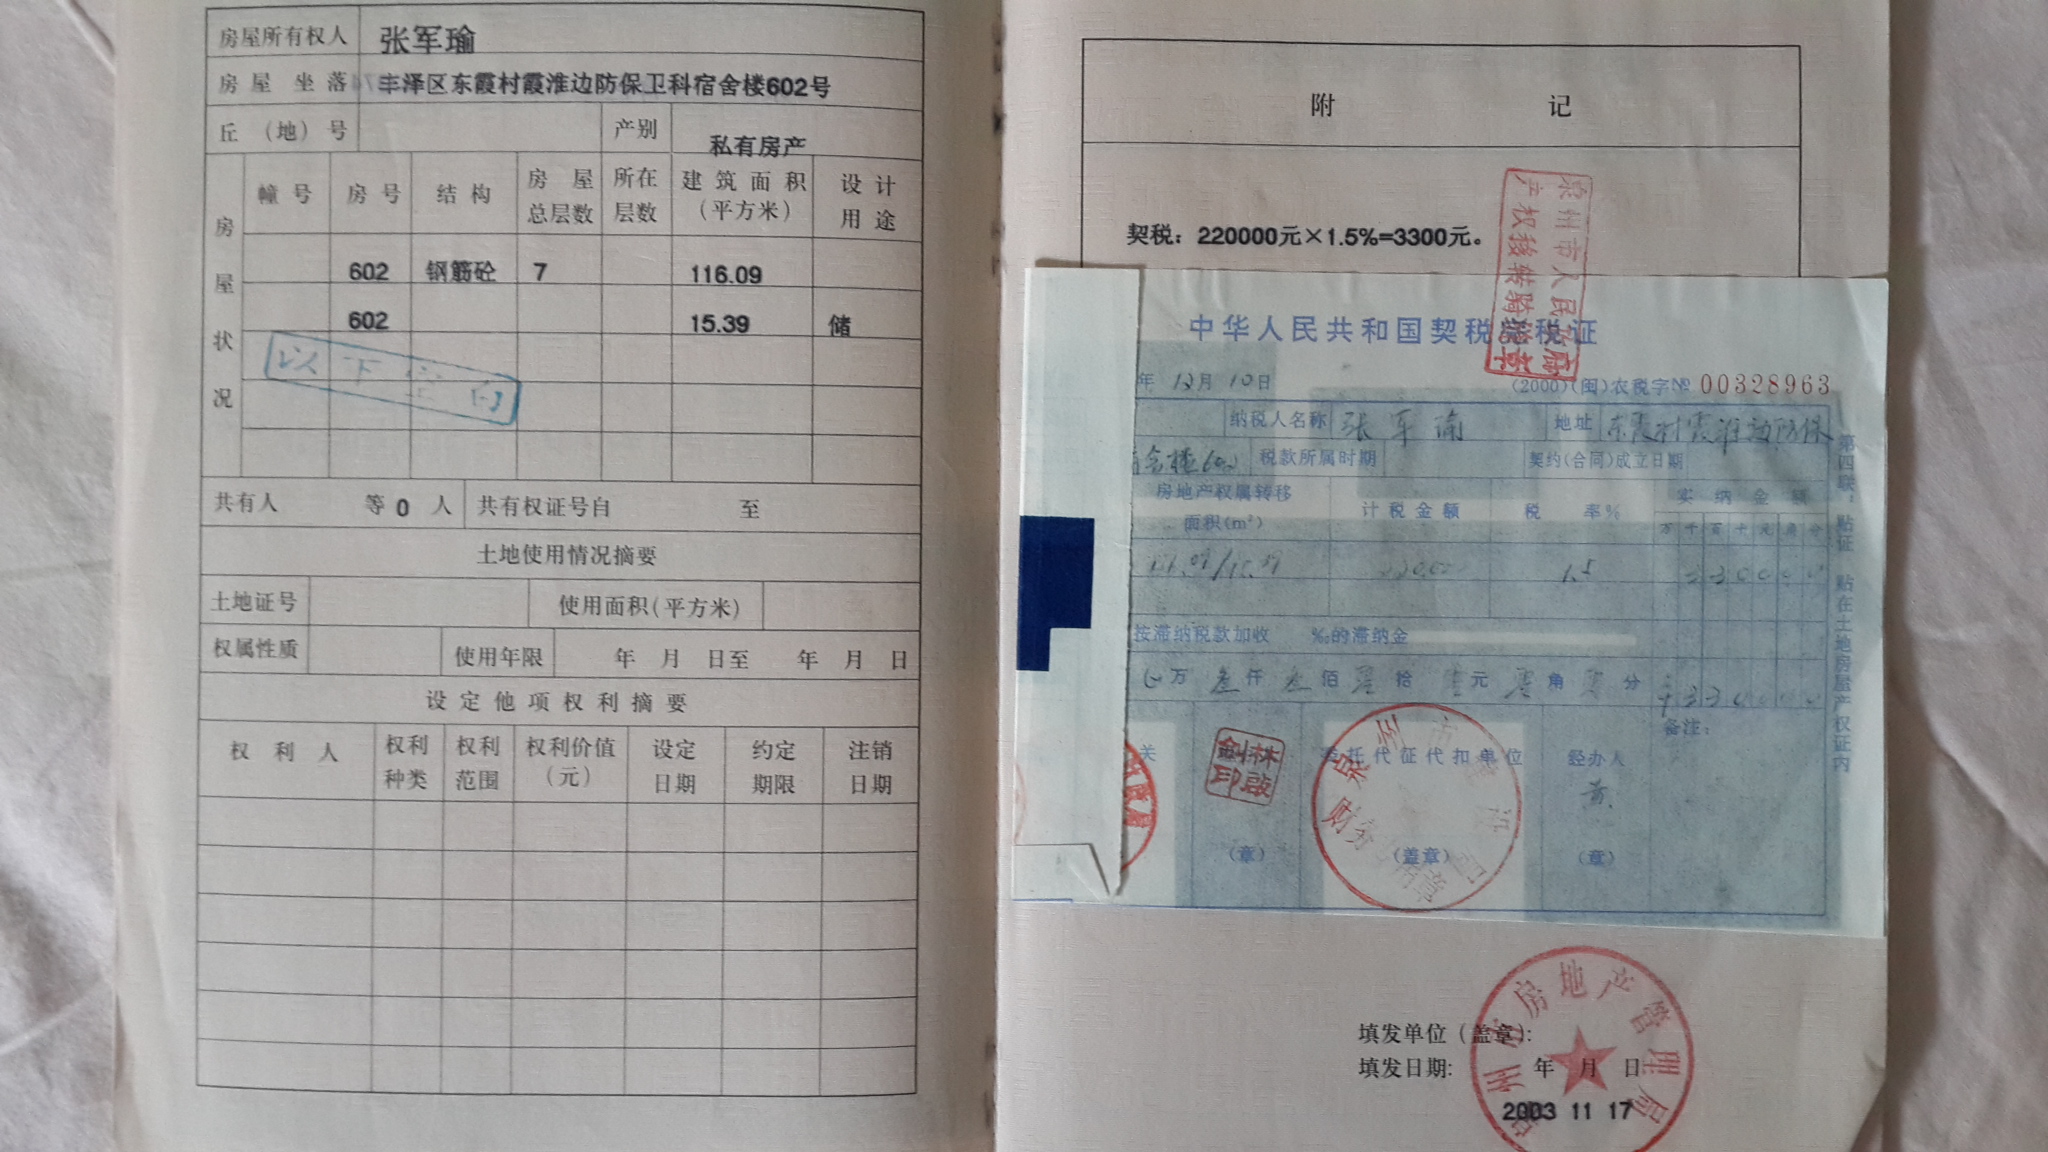 房屋所有权人 张军瑜
房屋坐落 丰泽区东霞村霞淮边防保卫科宿舍楼602号
丘（地）号 产别 私有房产
房屋状况
幢号 房号 结构 房屋总层数 所在层数 建筑面积（平方米） 设计用途
602 钢筋砼 7 116.09
602 15.39 储
以下空白
共有人 等0人 共有权证号自 至
土地使用情况摘要
土地证号 使用面积(平方米)
权属性质 使用年限 年 月 日至 年 月 日
设定他项权利摘要
权利人 权利种类 权利范围 权利价值（元） 设定日期 约定期限 注销日期
附 记
契税：220000元×1.5%=3300元。
泉州市人民政府
产权移转
中华人民共和国契税完税证
年 12月 10日 (2000)(闽)农税字№ 00328963
纳税人名称 张军瑜 地址 东霞村霞淮边防保
舍楼602 税款所属时期 契约(合同)成立日期
房地产权属转移面积(m²) 计税金额 税 率% 实纳金额
万 千 百 十 元 角 分
1.5 330000
按滞纳税款加收 ‰的滞纳金
万 叁仟 叁佰 零拾 零元 零角 零分 ¥330000
关 委托代征代扣单位 经办人 备注：
林啟剑印
黄
（章） （盖章） （章）
泉州市
财务专用章
第四联：贴证 贴在土地房屋产权证内
填发单位（盖章）：
填发日期： 年 月 日
2003 11 17
泉州市房地产管理局